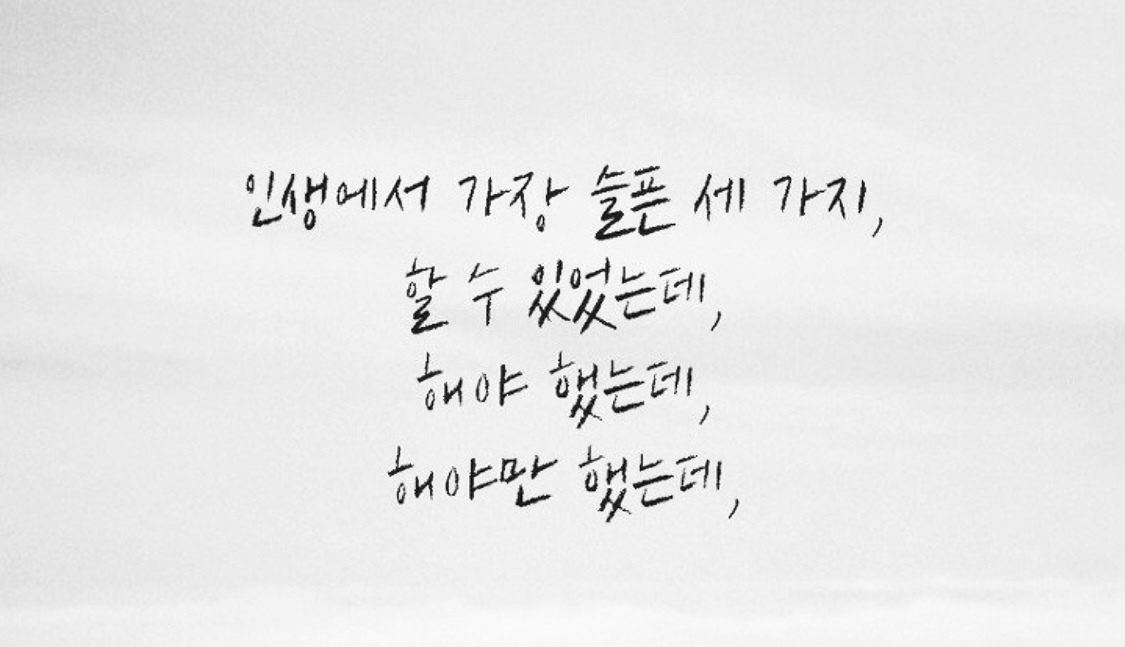 인생에서 가장 슬픈 세 가지,
할 수 있었는데,
해야 했는데,
해야만 했는데,